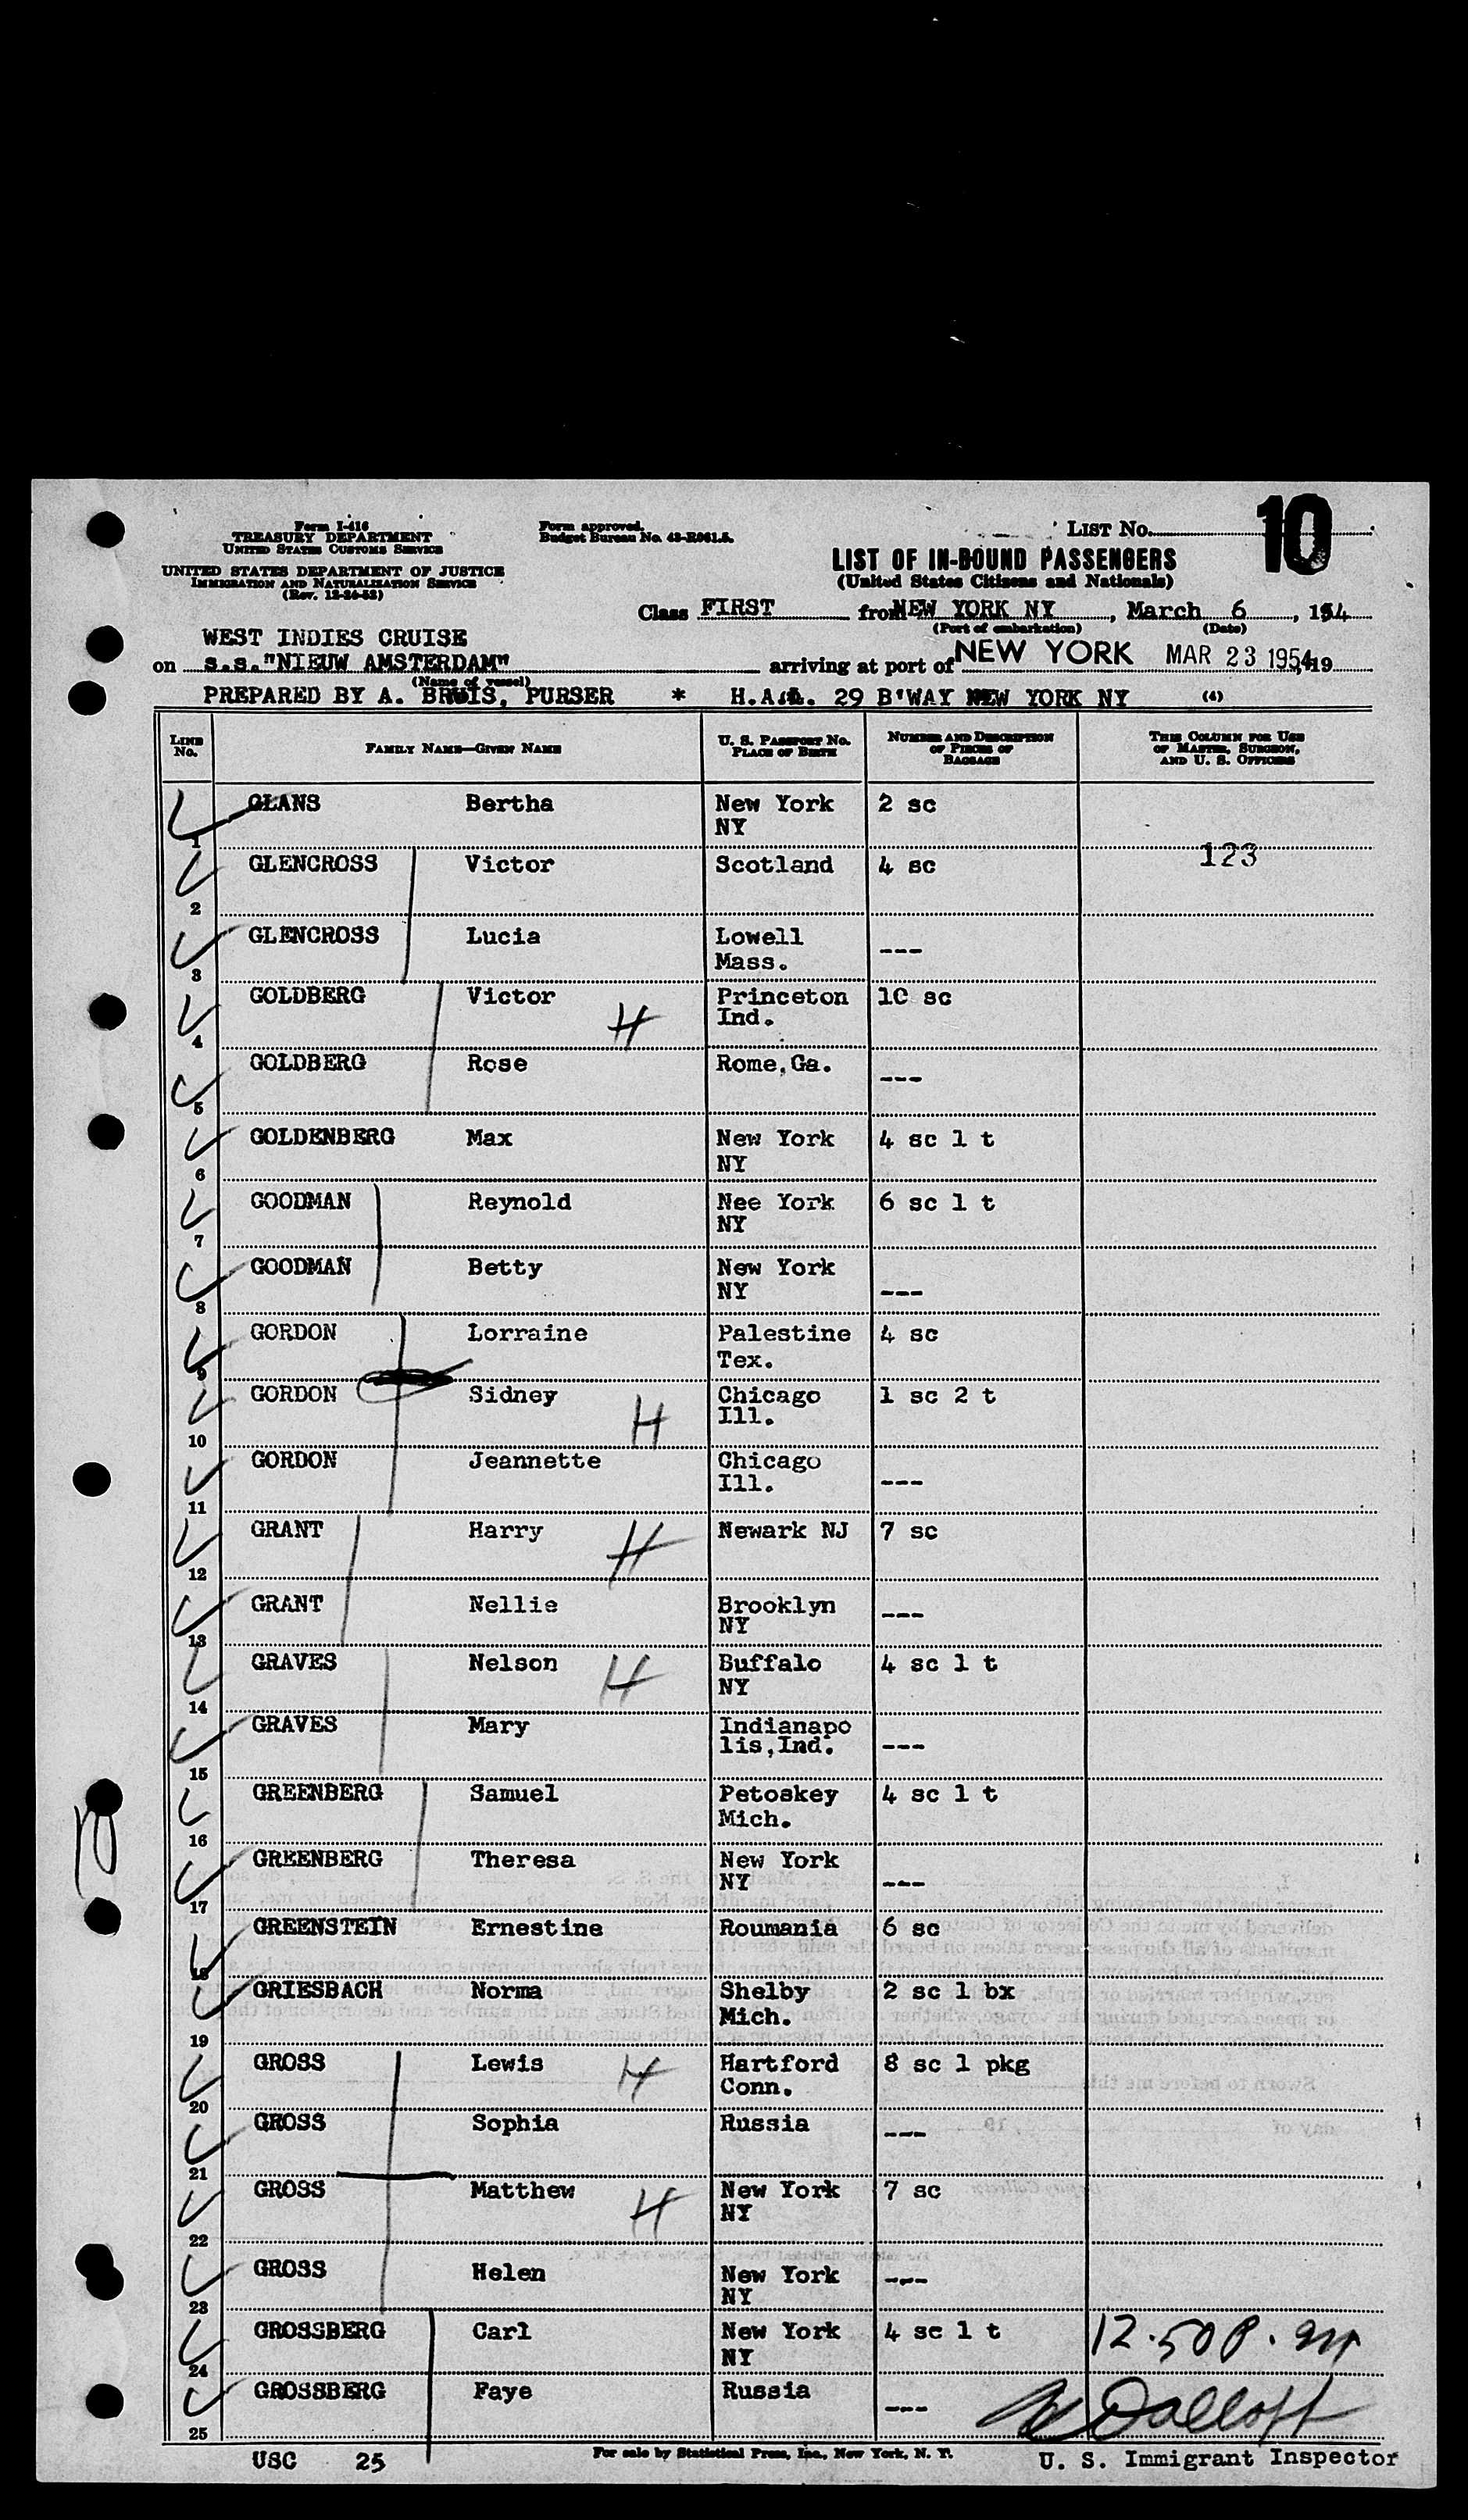 Form I-416
TREASURY DEPARTMENT
UNITED STATES CUSTOMS SERVICE
UNITED STATES DEPARTMENT OF JUSTICE
IMMIGRATION AND NATURALIZATION SERVICE
(Rev. 12-26-52)
Form approved.
Budget Bureau No. 43-R061.5.
LIST No. 10
LIST OF IN-BOUND PASSENGERS
(United States Citizens and Nationals)
Class FIRST from NEW YORK NY, March 6, 1954
(Port of embarkation) (Date)
WEST INDIES CRUISE
on s.s."NIEUW AMSTERDAM" arriving at port of NEW YORK MAR 23 1954, 19
(Name of vessel)
PREPARED BY A. BRUIS, PURSER * H.A.L. 29 B'WAY NEW YORK NY (4)
LINE No. FAMILY NAME—GIVEN NAME U. S. PASSPORT No. PLACE OF BIRTH NUMBER AND DESCRIPTION OF PIECES OF BAGGAGE THIS COLUMN FOR USE OF MASTER, SURGEON, AND U. S. OFFICERS
1 GLANS Bertha New York NY 2 sc
123
2 GLENCROSS Victor Scotland 4 sc
3 GLENCROSS Lucia Lowell Mass. ---
4 GOLDBERG Victor H Princeton Ind. 10 sc
5 GOLDBERG Rose Rome,Ga. ---
6 GOLDENBERG Max New York NY 4 sc 1 t
7 GOODMAN Reynold Nee York NY 6 sc 1 t
8 GOODMAN Betty New York NY ---
9 GORDON Lorraine Palestine Tex. 4 sc
10 GORDON Sidney H Chicago Ill. 1 sc 2 t
11 GORDON Jeannette Chicago Ill. ---
12 GRANT Harry H Newark NJ 7 sc
13 GRANT Nellie Brooklyn NY ---
14 GRAVES Nelson H Buffalo NY 4 sc 1 t
15 GRAVES Mary Indianapo lis,Ind. ---
16 GREENBERG Samuel Petoskey Mich. 4 sc 1 t
17 GREENBERG Theresa New York NY ---
18 GREENSTEIN Ernestine Roumania 6 sc
19 GRIESBACH Norma Shelby Mich. 2 sc 1 bx
20 GROSS Lewis H Hartford Conn. 8 sc 1 pkg
21 GROSS Sophia Russia ---
22 GROSS Matthew H New York NY 7 sc
23 GROSS Helen New York NY ---
24 GROSSBERG Carl New York NY 4 sc 1 t 12.50 P.M
25 GROSSBERG Faye Russia ---
USC 25 For sale by Statistical Press, Inc., New York, N. Y. U. S. Immigrant Inspector